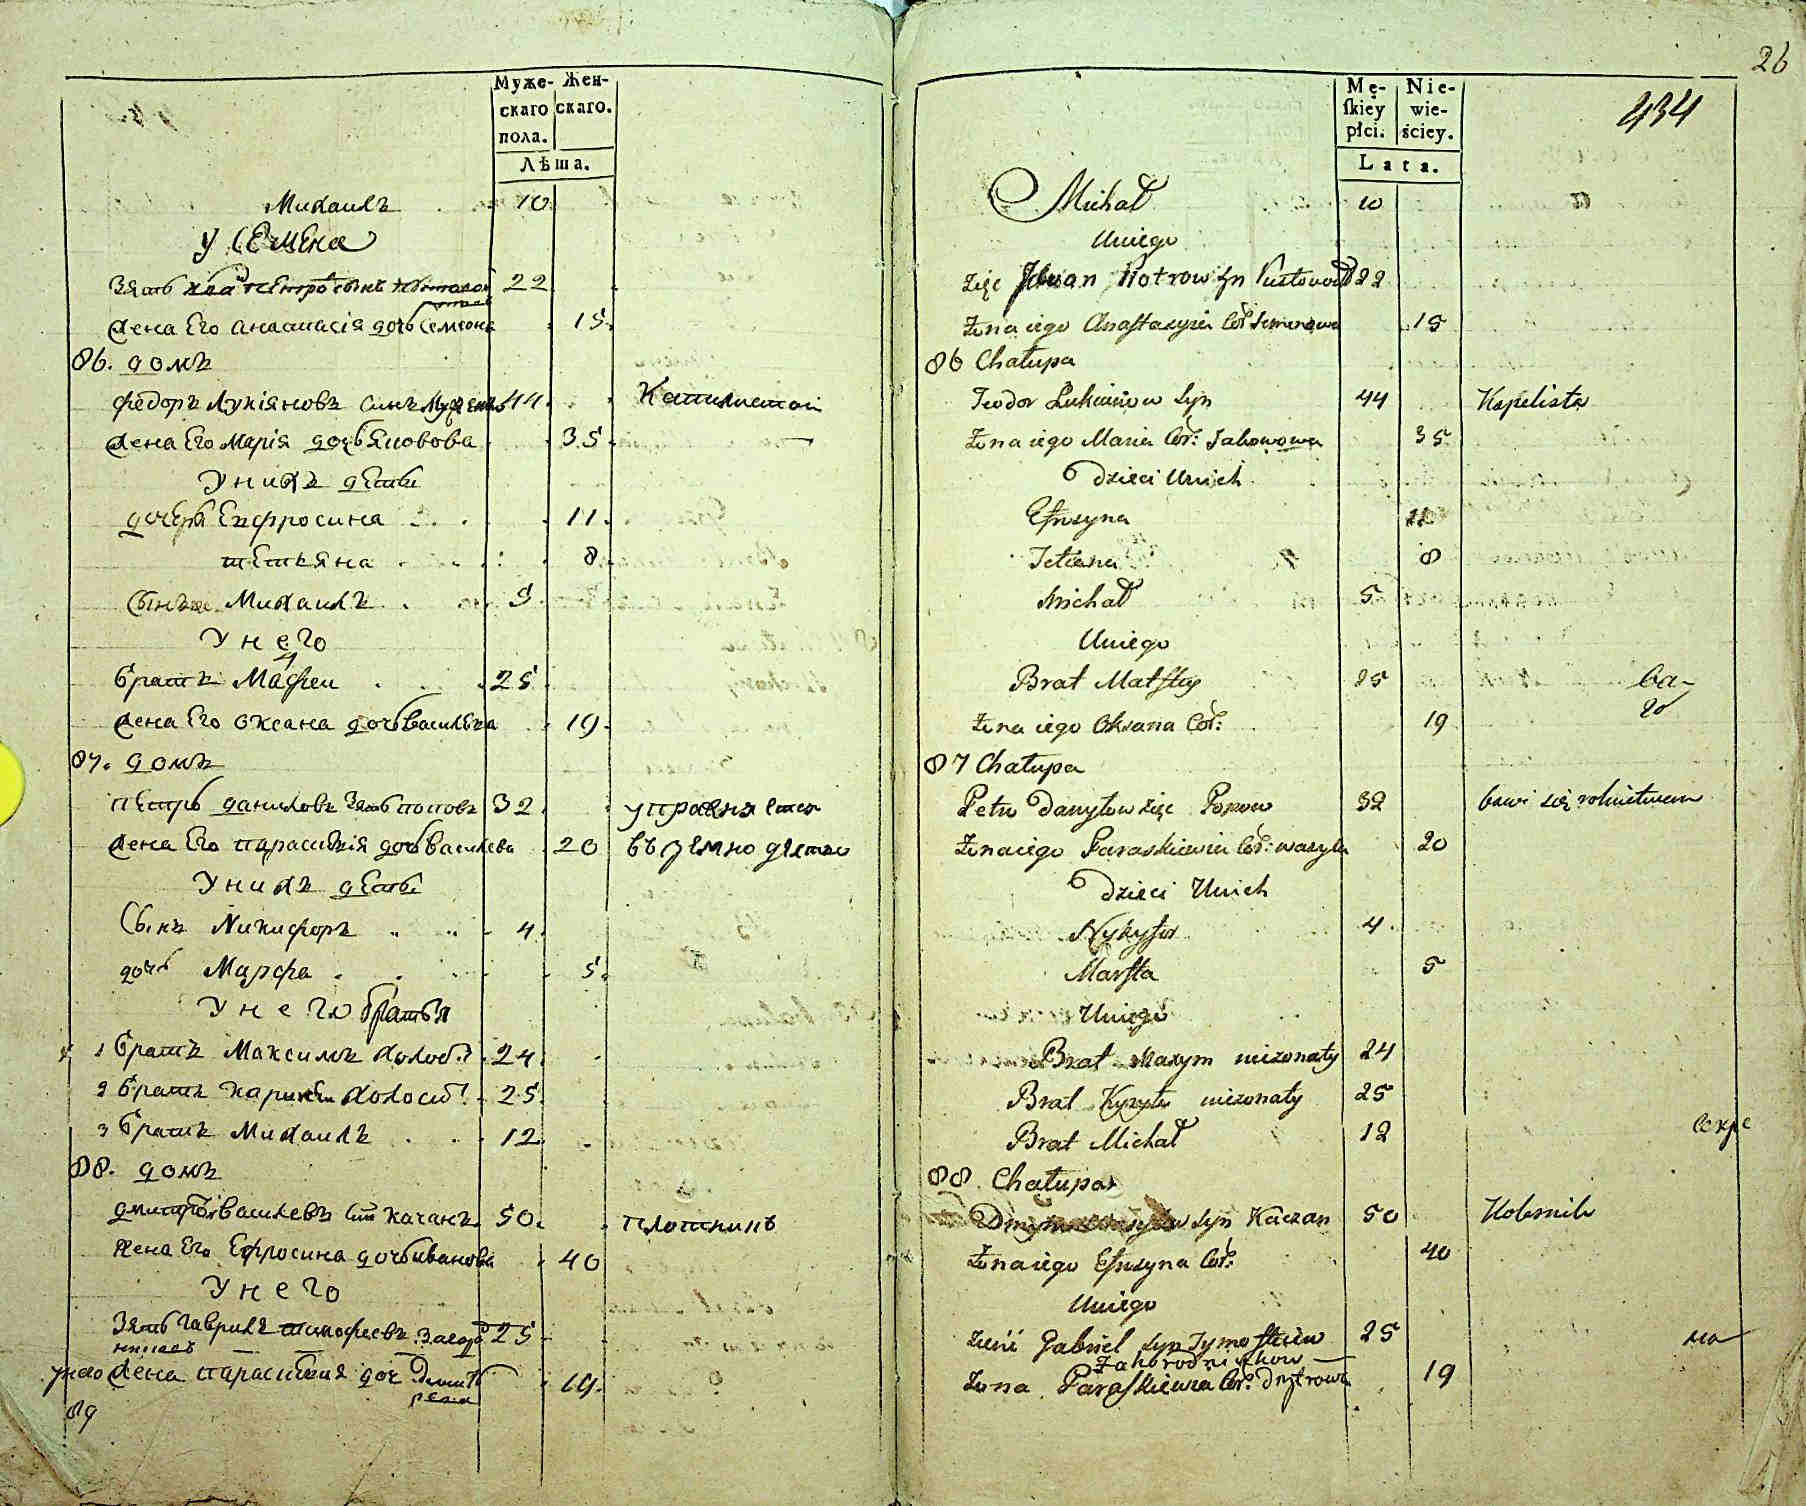 Муже-
скаго
пола.
Жен-
скаго.
Лѣта.
Михаилъ 10
У Семена
Зять 22
жена Его анастасія дочь Семиона 15
86. домъ
федоръ лукіяновъ синъ 44
жена Его Марія дочь Яковова 35
У нихъ дѣти
дочерь Ехфросина 11
тетьяна 8
Сынъ Михаилъ 5
У него
братъ Мафеи 25
жена Его Оксана дочь васильева 19
87. домъ
петръ даниловъ Зять поповъ 32 управляется
жена Его параскевія дочь васильева 20
У нихъ дѣти
Сынъ Никифоръ 4
дочь Марфа 5
У него братья
1 братъ Максимъ холос? 24
2 братъ холост? 25
3 братъ Михаилъ 12
88. домъ
дмитро васильевъ качанъ 50 плотникъ
жена Его Ефросина дочь иванова 40
У него
Зять гаврила тимофеевъ 25
жена параскевия доч 19
89
26
434
Mę-
skiey
płci.
Nie-
wie-
ściey.
Lata.
Michał 10
Uniego
Zięc Iwan Piotrow syn 22
Żona iego Anastazyia Cór: Semenowa 15
86 Chałupa
Teodor Łukianow Syn 44 Kapelista
Żona iego Maria Cór: Jakowowa 35
Dzieci Unich
Efrozyna 11
Tetiana 8
Michał 5
Uniego
Brat Matftey 25
Żona iego Oksana Cór: 19
87 Chałupa
Petro Danyłow Zięc Popow 32 bawi się rolnictwem
Żona iego Paraskiewia Cór: wasyla 20
Dzieci Unich
Nykyfor 4
Marfta 5
Uniego
Brat Maxym nieżonaty 24
Brat Kyryło nieżonaty 25
Brat Michał 12
88 Chałupa
Dmytro syn Kaczan 50
Żona iego Efrozyna Cór: 40
Uniego
Gabriel syn Tymofteiew 25
Zahorodniczkow
Żona Paraskiewia Cór: 19